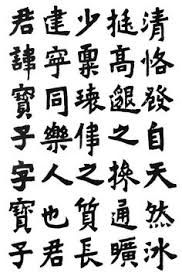 君諱寶子字寶子
建寧同樂人也君
少稟瓌偉之質長
挺高邈之操通曠
清恪發自天然冰